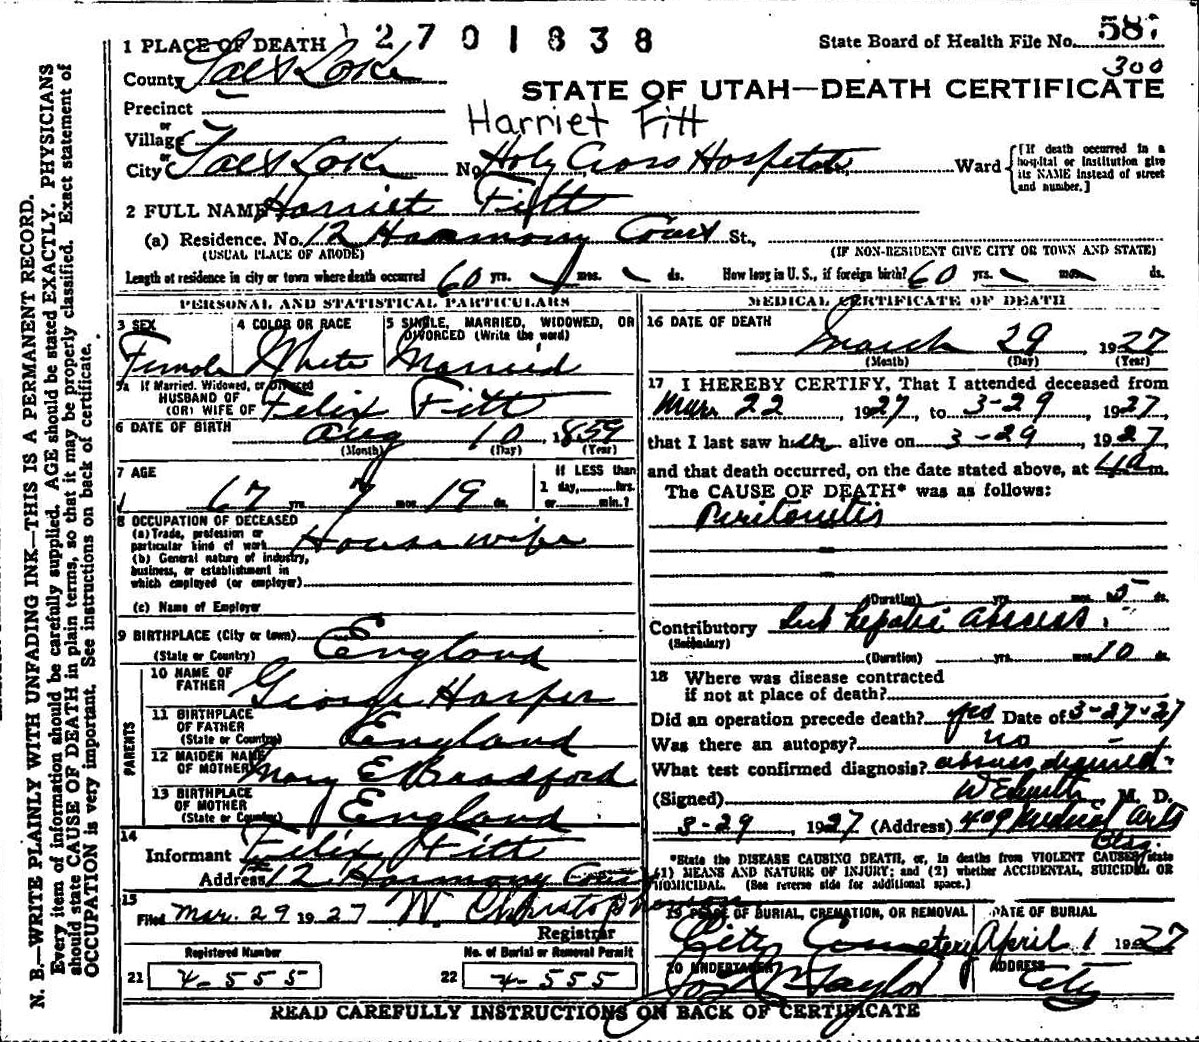 1 PLACE OF DEATH 12701838
State Board of Health File No. 587
300
County Salt Lake
STATE OF UTAH—DEATH CERTIFICATE
Precinct
or
Village
Harriet Fitt
or
City Salt Lake No. Holy Cross Hospital, Ward
[If death occurred in a hospital or institution give its NAME instead of street and number.]
2 FULL NAME Harriet Fitt
(a) Residence. No. 12 Harmony Court St.,
(USUAL PLACE OF ABODE) (IF NON-RESIDENT GIVE CITY OR TOWN AND STATE)
Length of residence in city or town where death occurred 60 yrs. - mos. - ds. How long in U. S., if foreign birth? 60 yrs. - mos. ds.
PERSONAL AND STATISTICAL PARTICULARS
3 SEX Female
4 COLOR OR RACE White
5 SINGLE, MARRIED, WIDOWED, OR DIVORCED (Write the word) Married
5a If Married, Widowed, or Divorced
HUSBAND OF
(OR) WIFE OF Felix Fitt
6 DATE OF BIRTH Aug 10, 1859
(Month) (Day) (Year)
7 AGE 67 yrs. 7 mos. 19 ds.
If LESS than
1 day, hrs.
or min.?
8 OCCUPATION OF DECEASED
(a) Trade, profession or
particular kind of work Housewife
(b) General nature of industry,
business, or establishment in
which employed (or employer)
(c) Name of Employer
9 BIRTHPLACE (City or town)
(State or Country) England
PARENTS
10 NAME OF
FATHER George Harper
11 BIRTHPLACE
OF FATHER
(State or Country) England
12 MAIDEN NAME
OF MOTHER Mary E Bradford
13 BIRTHPLACE
OF MOTHER
(State or Country) England
14
Informant Felix Fitt
Address 12 Harmony Court
15
Filed Mar. 29 1927 W. Christopherson
Registrar
Registered Number
21 4-555
No. of Burial or Removal Permit
22 4-555
MEDICAL CERTIFICATE OF DEATH
16 DATE OF DEATH
March 29, 1927
(Month) (Day) (Year)
17 I HEREBY CERTIFY, That I attended deceased from
Mar. 22, 1927, to 3-29, 1927,
that I last saw her alive on 3-29, 1927
and that death occurred, on the date stated above, at 4 a m.
The CAUSE OF DEATH* was as follows:
Peritonitis
(Duration) yrs. mos. 5 ds.
Contributory Sub hepatic abscess
(Secondary)
(Duration) yrs. mos. 10 ds.
18 Where was disease contracted
if not at place of death?
Did an operation precede death? yes Date of 3-27-27
Was there an autopsy? no
What test confirmed diagnosis? abscess drained
(Signed) M. D.
3-29, 1927 (Address) 409 Medical Arts
Bldg.
*State the DISEASE CAUSING DEATH, or, in deaths from VIOLENT CAUSES, state
(1) MEANS AND NATURE OF INJURY; and (2) whether ACCIDENTAL, SUICIDAL OR
HOMICIDAL. (See reverse side for additional space.)
19 PLACE OF BURIAL, CREMATION, OR REMOVAL City Cemetery
DATE OF BURIAL April 1 1927
20 UNDERTAKER Jos. Taylor
ADDRESS City
READ CAREFULLY INSTRUCTIONS ON BACK OF CERTIFICATE
N. B.—WRITE PLAINLY WITH UNFADING INK—THIS IS A PERMANENT RECORD.
Every item of information should be carefully supplied. AGE should be stated EXACTLY. PHYSICIANS
should state CAUSE OF DEATH in plain terms, so that it may be properly classified. Exact statement of
OCCUPATION is very important. See instructions on back of certificate.